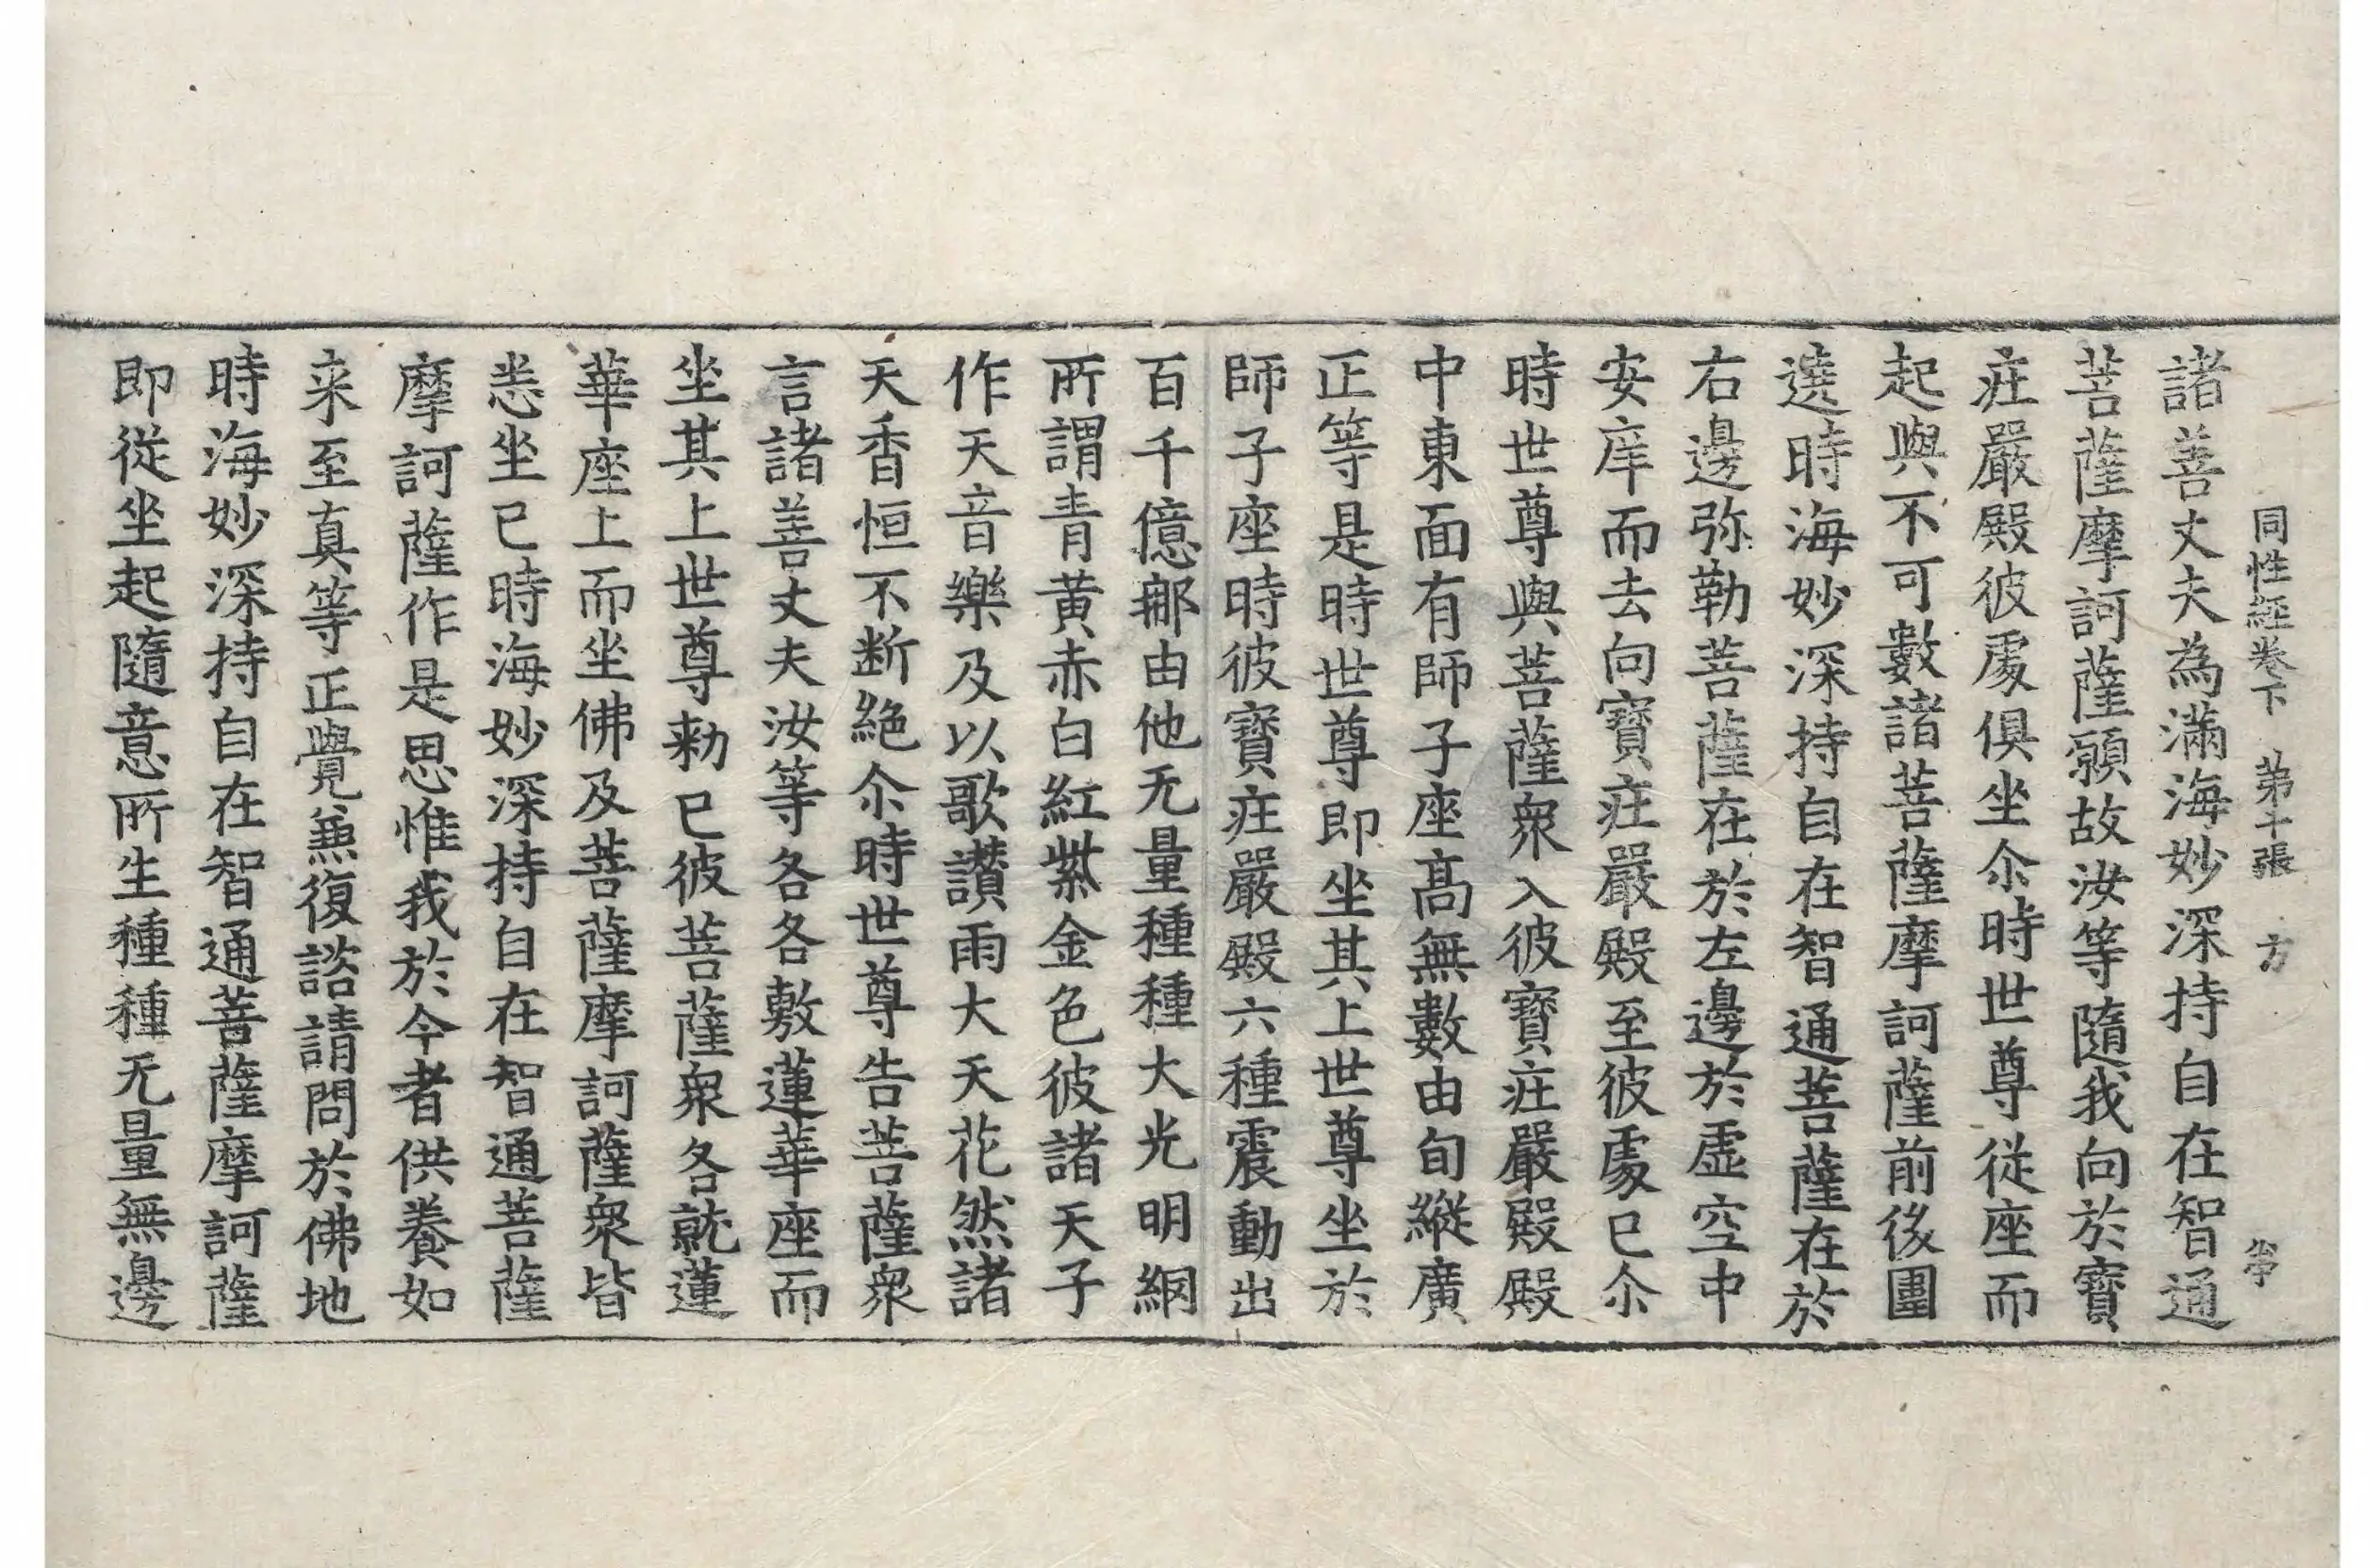 同性經卷下 第十張 方
諸善丈夫為滿海妙深持自在智通
菩薩摩訶薩願故汝等隨我向於寶
莊嚴殿彼處俱坐尒時世尊從座而
起與不可數諸菩薩摩訶薩前後圍
遶時海妙深持自在智通菩薩在於
右邊弥勒菩薩在於左邊於虛空中
安庠而去向寶莊嚴殿至彼處已尒
時世尊與菩薩衆入彼寶莊嚴殿殿
中東面有師子座高無數由旬縱廣
正等是時世尊即坐其上世尊坐於
師子座時彼寶莊嚴殿六種震動出
百千億那由他无量種種大光明網
所謂青黃赤白紅紫金色彼諸天子
作天音樂及以歌讚雨大天花然諸
天香恒不断絕尒時世尊告菩薩衆
言諸善丈夫汝等各各敷蓮華座而
坐其上世尊勑已彼菩薩衆各就蓮
華座上而坐佛及菩薩摩訶薩衆皆
悉坐已時海妙深持自在智通菩薩
摩訶薩作是思惟我於今者供養如
来至真等正覺無復諮請問於佛地
時海妙深持自在智通菩薩摩訶薩
即從坐起隨意所生種種无量無邊